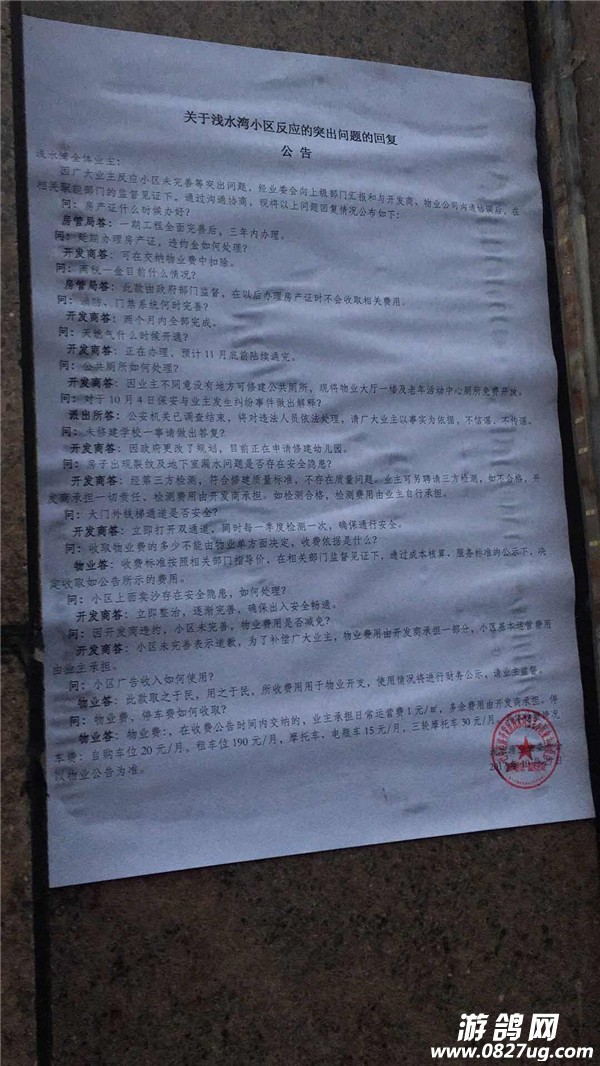 关于浅水湾小区反应的突出问题的回复
公 告
浅水湾全体业主：
因广大业主反应小区未完善等突出问题，经业委会向上级部门汇报和与开发商、物业公司沟通协调后，在
相关职能部门的监督见证下，通过沟通协商，现将以上问题回复情况公布如下：
问：房产证什么时候办好？
房管局答：一期工程全面完善后，三年内办理。
问：延期办理房产证，违约金如何处理？
开发商答：可在交纳物业费中扣除。
问：两税一金目前什么情况？
房管局答：此款由政府部门监督，在以后办理房产证时不会收取相关费用。
问：消防、门禁系统何时完善？
开发商答：两个月内全部完成。
问：天然气什么时候开通？
开发商答：正在办理，预计11月底前陆续通完。
问：公共厕所如何处理？
开发商答：因业主不同意没有地方可修建公共厕所，现将物业大厅一楼及老年活动中心厕所免费开放。
问：对于10月4日保安与业主发生纠纷事件做出解释？
派出所答：公安机关已调查结束，将对违法人员依法处理，请广大业主以事实为依据，不信谣、不传谣。
问：未修建学校一事请做出答复？
开发商答：因政府更改了规划，目前正在申请修建幼儿园。
问：房子出现裂纹及地下室漏水问题是否存在安全隐患？
开发商答：经第三方检测，符合修建质量标准，不存在质量问题。业主可另聘请三方检测，如不合格，开
发商承担一切责任、检测费用由开发商承担。如检测合格，检测费用由业主自行承担。
问：大门外栈桥通道是否安全？
开发商答：立即打开双通道，同时每一季度检测一次，确保通行安全。
问：收取物业费的多少不能由物业单方面决定，收费依据是什么？
物业答：收费标准按照相关部门指导价，在相关部门监督见证下，通过成本核算、服务标准的公示下，决
定收取如公告所示的费用。
问：小区上面卖沙存在安全隐患，如何处理？
开发商答：立即整治，逐渐完善，确保出入安全畅通。
问：因开发商违约，小区未完善，物业费用是否减免？
开发商答：小区未完善表示道歉，为了补偿广大业主，物业费用由开发商承担一部分，小区基本运营费用
由业主承担。
问：小区广告收入如何使用？
物业答：此款取之于民，用之于民，所收费用用于物业开支，使用情况将进行财务公示，请业主监督。
问：物业费、停车费如何收取？
物业答：物业费：在收费公告时间内交纳的，业主承担日常运营费1元/㎡，多余费用由开发商承担。停
车费：自购车位20元/月，租车位190元/月，摩托车、电瓶车15元/月，三轮摩托车30元/月。情况
以物业公告为准。
游鸽网
www.0827ug.com